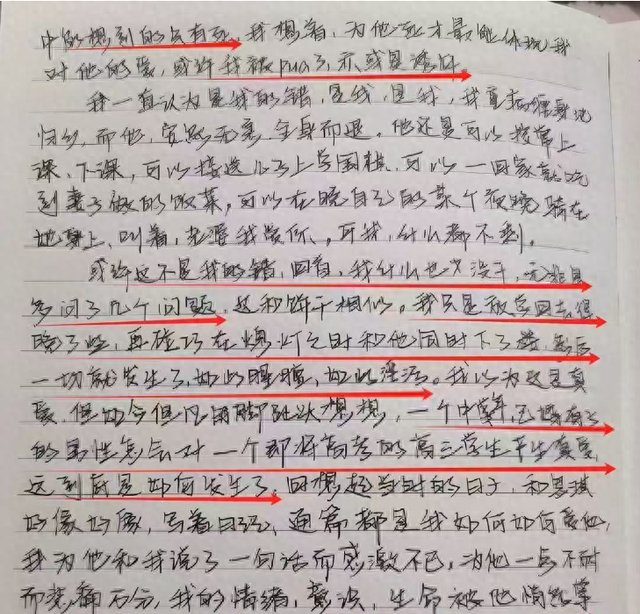 中能想到的只有死，我想着，为他死才最能体现我
对他的爱，或许我被pua了，亦或是洗脑。
我一直认为是我的错，是我，是我，我重病缠身地
归乡，而他，安然无恙，全身而退。他还是可以按常上
课、下课，可以接送儿子上学围棋，可以一回家就吃
到妻子做的饭菜，可以在晚自己的某个夜晚骑在
她身上，叫着，老婆我爱你、可我，什么都不剩。
或许这不是我的错，回首，我什么也没干，无非是
多问了几个问题，这和饼干相似。我只是放学回去得
晚了些，再碰巧在熄灯之时和他同时下了楼，然后
一切就发生了，如此朦胧，如此淫荡。我以为这是真
爱，但如今但凡用脚趾头想想，一个中年，已婚有子
的男性怎会对一个即将高考的高三学生产生真爱，
这到底是如何发生了，回想起当时的日子，和思琪
好像好像，写着日记，通篇都是我如何如何爱他，
我为他和我说了一句话而感激不已，为他一点不耐
而悲痛万分，我的情绪，意识，生命被他悄然掌